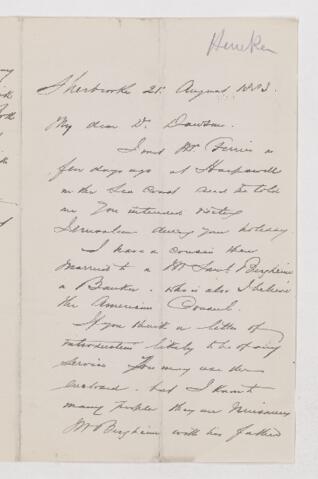 Heneker
Sherbrooke 21. August 1883.
My dear Dr. Dawson.
I met Mr Ferrier a
few days ago at Harpswell
on the Sea Coast and he told
me you intended visiting
Jerusalem during your holiday
I have a cousin there
married to a Mr Saml Bergheim
a Banker. who is also I believe
the American Consul.
If you think a letter of
introduction likely to be of any
service you may use the
enclosed. but I know
many people
Mr Bergheim with his father